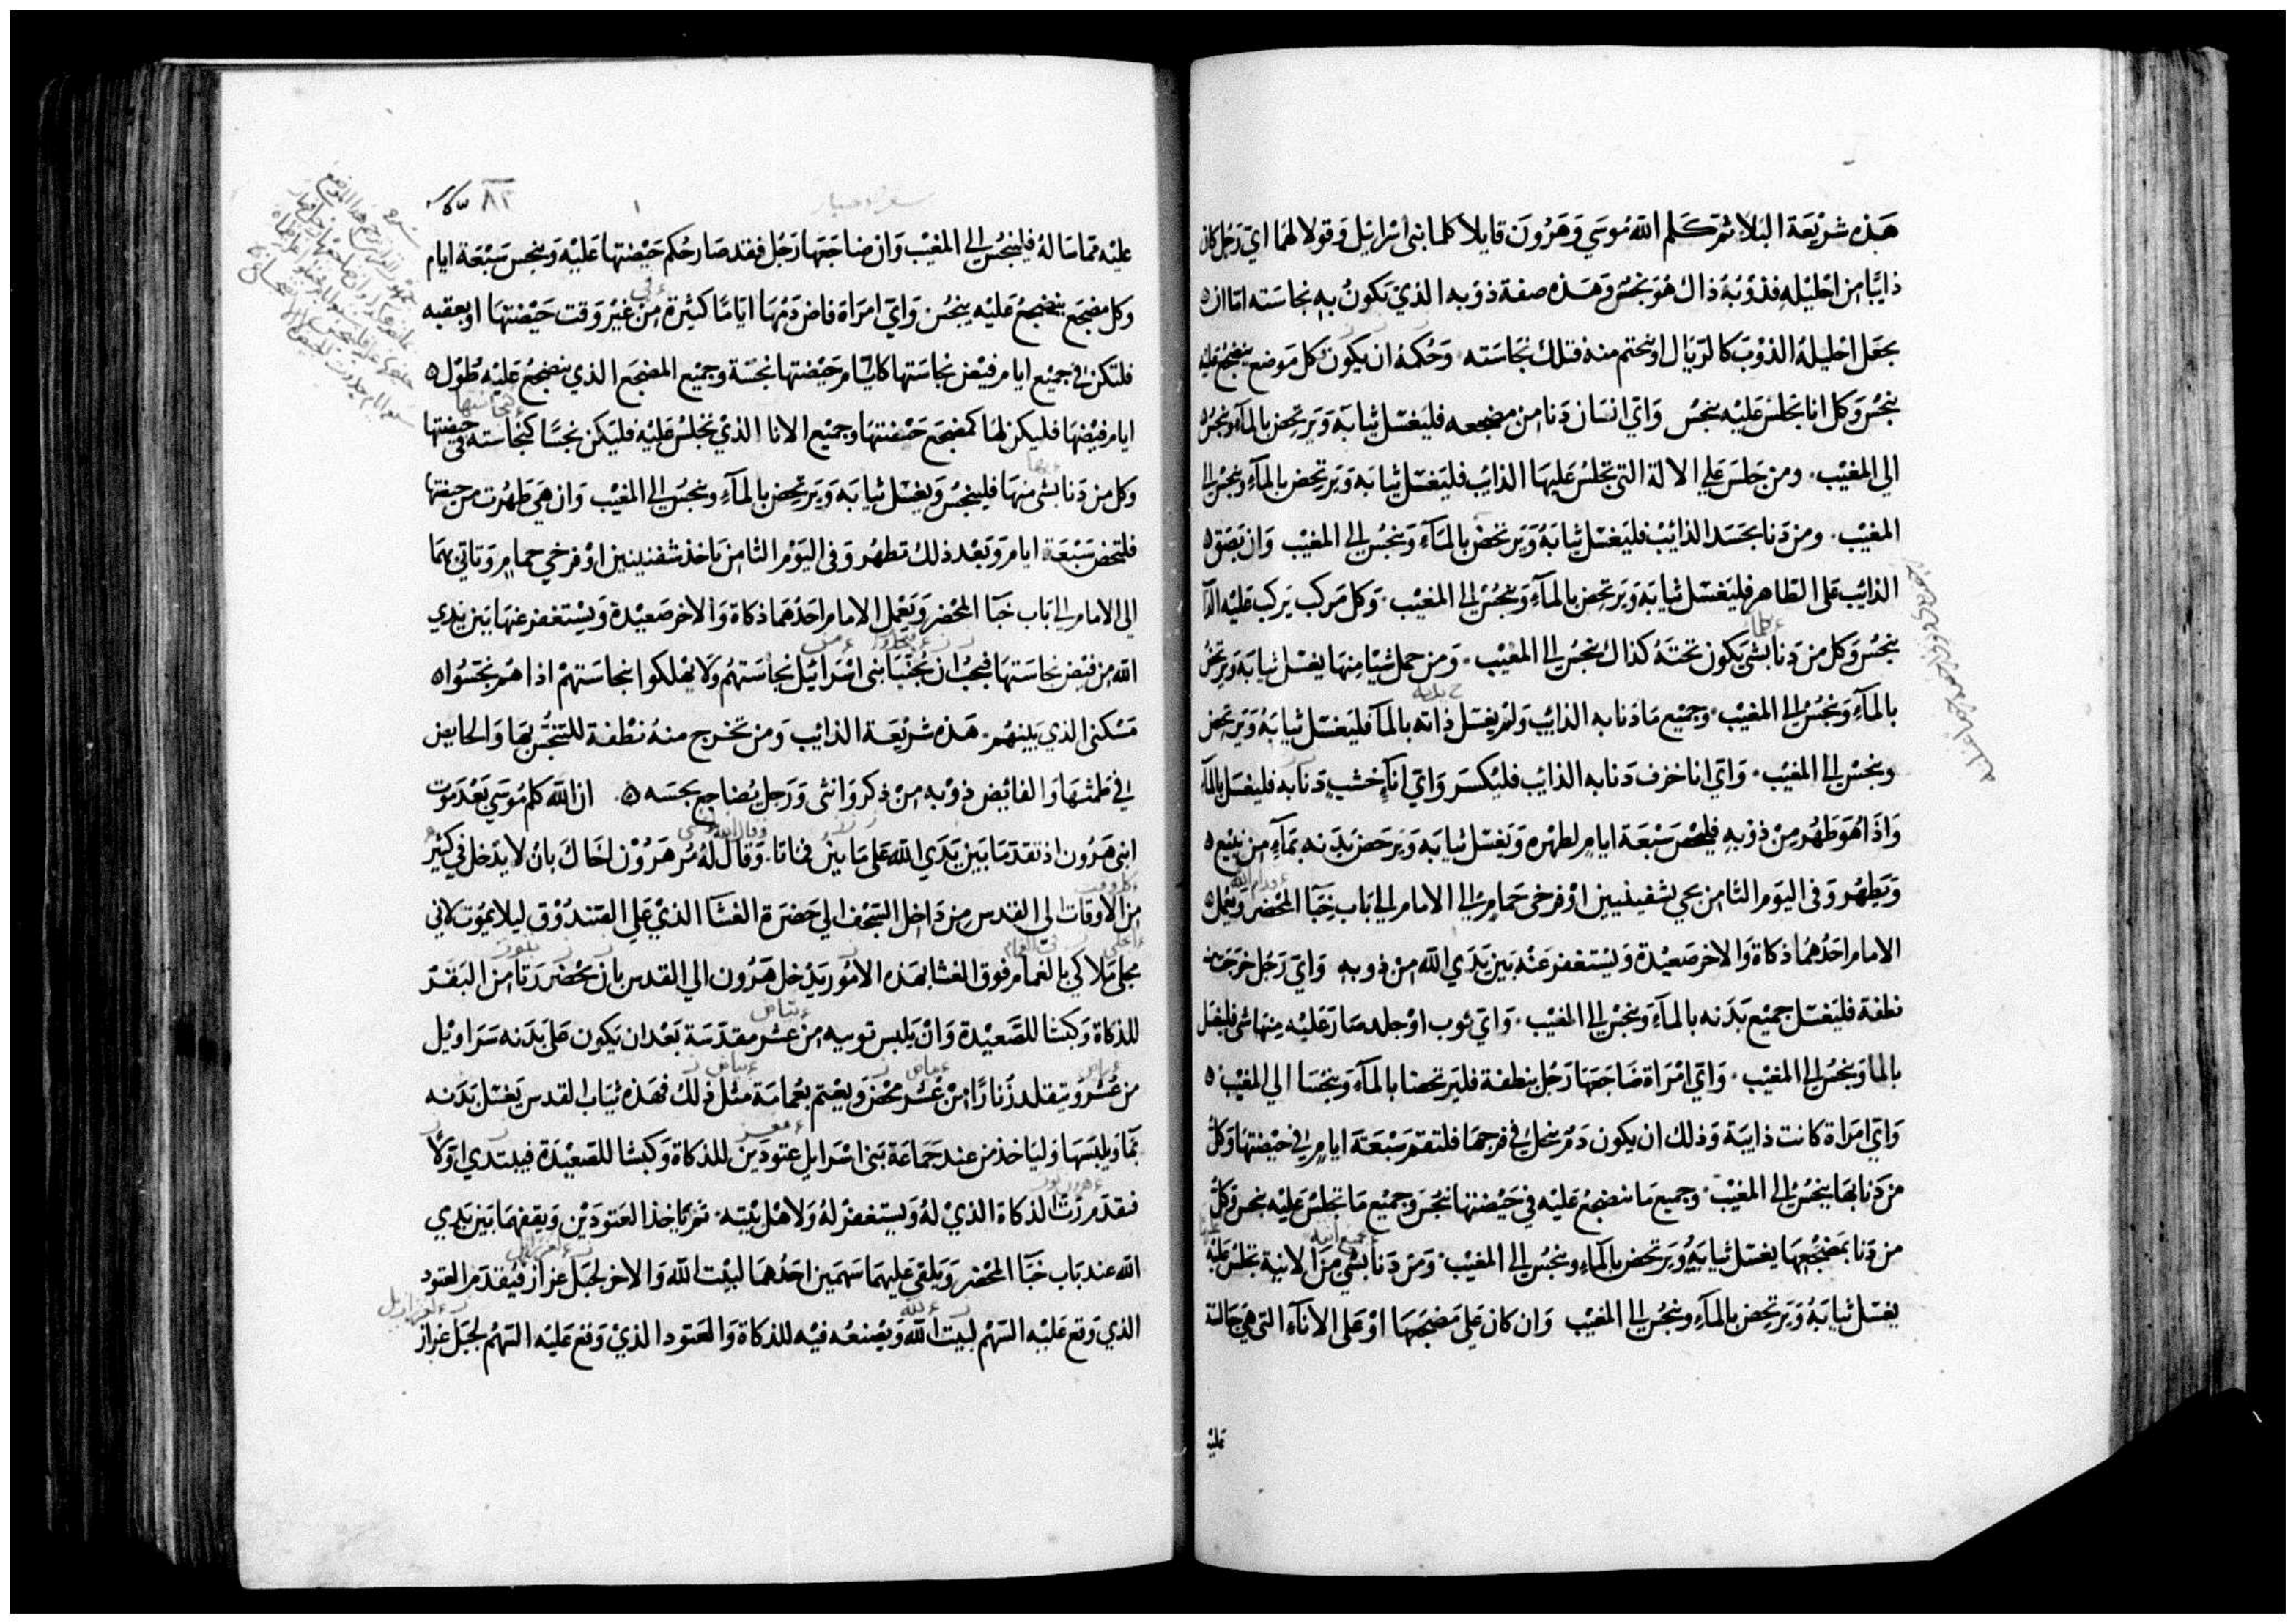 هذه شريعة البلا ثم كلم الله موسي وهرون قايلا كلما بنى اسرايل وقولا لهما اي رجل كان
ذايبا من احليله فذوبه ذاك هو نجس وهذه صفة ذوبه الذي يكون به نجاسته اما ان
يجعل احليله الذوب كالريال او يختم منه فتلك نجاسته وحكمه ان يكون كل موضع ينضجع عليه
ينجس وكل انا يجلس عليه ينجس واي انسان دنا من مضجعه فليغسل ثيابه ويرتحض بالمآء وينجس
الي المغيب ومن جلس علي الالة التي يجلس عليها الذايب فليغسل ثيابه ويرتحض بالمآء وينجس الى
المغيب ومن دنا بجسد الذائب فليغسل ثيابه ويرتحض بالمآء وينجس الى المغيب وان بصق
الذائب على الطاهر فليغسل ثيابه ويرتحض بالمآء وينجس الى المغيب وكل مركب يركب عليه
ينجس وكل من دنا بشي يكون تحته كذاك ينجس الى المغيب ومن حمل شيا منها يغسل ثيابه ويرتحض
بالمآء وينجس الى المغيب وجميع ما دنا به الذائب ولم يغسل ذاته بالمآ فليغسل ثيابه ويرتحض
وينجس الى المغيب واي انا خزف دنا به الذائب فليكسر واي انآء خشب دنا به فليغسل بالمآء
واذا هو طهر من ذوبه فليحص سبعة ايام لطهره ويغسل ثيابه ويرحض بدنه بمآء من نبع
ويطهر وفى اليوم الثامن يجي بشفينيين او فرخى حمام الى الامام الى باب خبآ المحضر ويعمل
الامام احدهما ذكاة والاخر صعيدة ويستغفر عنه بين يدي الله من ذوبه واي رجل خرجت منه
نطفة فليغسل جميع بدنه بالمآء وينجس الى المغيب واي ثوب او جلد صار عليه منها شى فليغسل
بالما وينجس الى المغيب واي امراة ضاجعها رجل بنطفة فليرتحضا بالمآء وينجسا الي المغيب
واي امراة كانت ذايبة وذلك ان يكون دم ينحل فى فرجها فلتقم سبعة ايام فى حيضتها وكل
من دنا بها ينجس الى المغيب وجميع ما تنضجع عليه في حيضتها نجس وجميع ما تجلس عليه نجس وكل
من دنا بمضجعها يغسل ثيابه ويرتحض بالمآء وينجس الى المغيب ومن دنا بشي من الانية تجلس عليه
يغسل ثيابه ويرتحض بالمآء وينجس الى المغيب وان كان على مضجعها او على الانآء التى هي جالسة
عليه
٨٣
عليه مماسا له فلينجس الى المغيب وان ضاجعها رجل فقد صار حكم حيضتها عليه وينجس سبعة ايام
وكل مضجع ينضجع عليه ينجس واي امراة فاض دمها اياما كثيرة من غير وقت حيضتها او بعقبه
فلتكن في جميع ايام فيض نجاستها كايام حيضتها نجسة وجميع المضجع الذي تنضجع عليه طول
ايام فيضها فليكن لها كمضجع حيضتها وجميع الانا الذي تجلس عليه فليكن نجسا كنجاسته في حيضتها
وكل من دنا بشى منها فلينجس ويغسل ثيابه ويرتحض بالمآء وينجس الى المغيب وان هي طهرت من حيضتها
فلتحص سبعة ايام وبعد ذلك تطهر وفى اليوم الثامن تاخذ شفنينين او فرخي حمام وتاتي بهما
الى الامام الى باب خبآ المحضر ويعمل الامام احدهما ذكاة والاخر صعيدة ويستغفر عنها بين يدي
الله من فيض نجاستها فيجب ان تجنبا بنى اسرائيل نجاستهم ولا يهلكوا بنجاستهم اذا هم نجسوا
مسكنى الذي بينهم هذه شريعة الذائب ومن تخرج منه نطفة للتنجس بها والحايض
في طمثها والفائض ذوبه من ذكر وانثى ورجل يضاجع نجسه ان الله كلم موسي بعد موت
ابنى هرون اذ تقدما بين يدي الله على ما بين فماتا وقال له مر هرون اخاك بان لا يدخل في كثير
من الاوقات الى القدس من داخل السجف الي حضرة الغشا الذي علي الصندوق ليلا يموت لانى
مجلى ملاكي بالغمام فوق الغشا بهذه الامور يدخل هرون الي القدس بان يحضر رتا من البقر
للذكاة وكبشا للصعيدة وان يلبس تونيه من عشر مقدسة بعد ان يكون على بدنه سراويل
من عشر ويتقلد زنارا من عشر محرز ويعتم بعمامة مثل ذلك فهذه ثياب القدس يغسل بدنه
بمآ ويلبسها وليا خذ من عند جماعة بنى اسرايل عتودين للذكاة وكبشا للصعيدة فيبتدي اولا
فيقدم رت الذكاة الذي له ويستغفر له ولاهل بيته ثم ياخذ العتودين ويقفهما بين يدي
الله عند باب خبآ المحضر ويلقى عليهما سهمين احدهما لبيت الله والاخر لجبل عزاز فيقدم العتود
الذي وقع عليه السهم لبيت الله ويصنعه فيه للذكاة والعتود الذي وقع عليه السهم لجبل عزاز